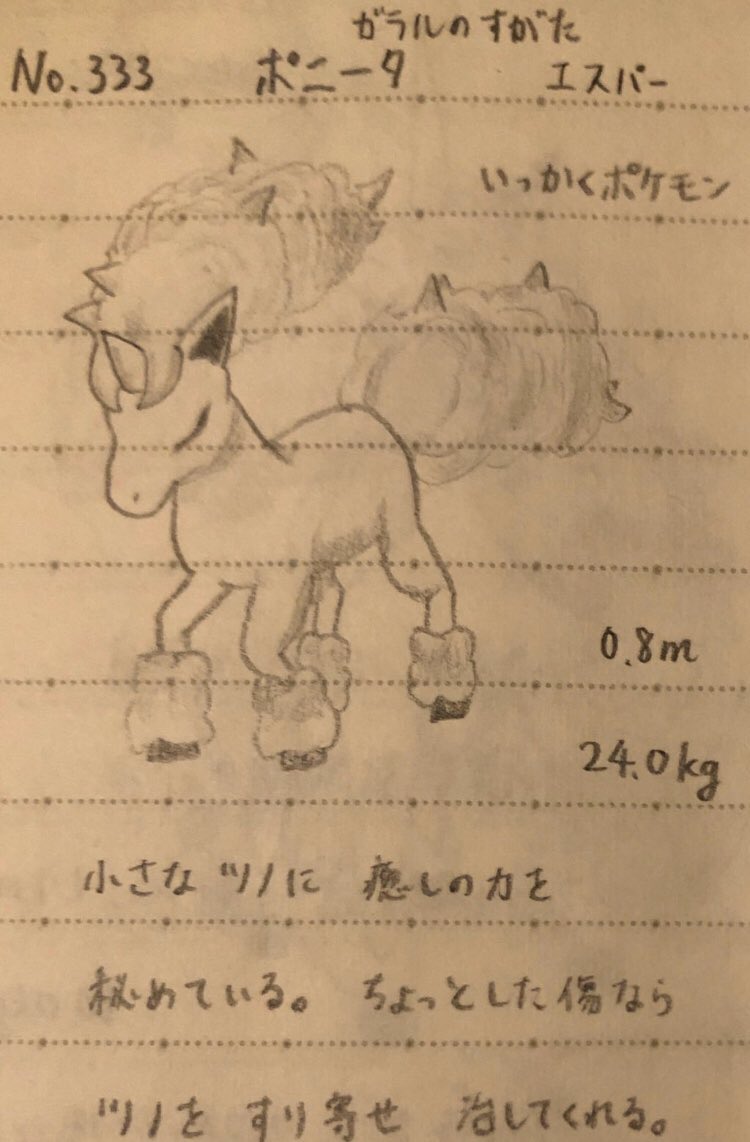 ガラルのすがた
No.333 ポニータ エスパー
いっかくポケモン
0.8m
24.0kg
小さな ツノに 癒しの力を
秘めている。 ちょっとした傷なら
ツノを すり寄せ 治してくれる。